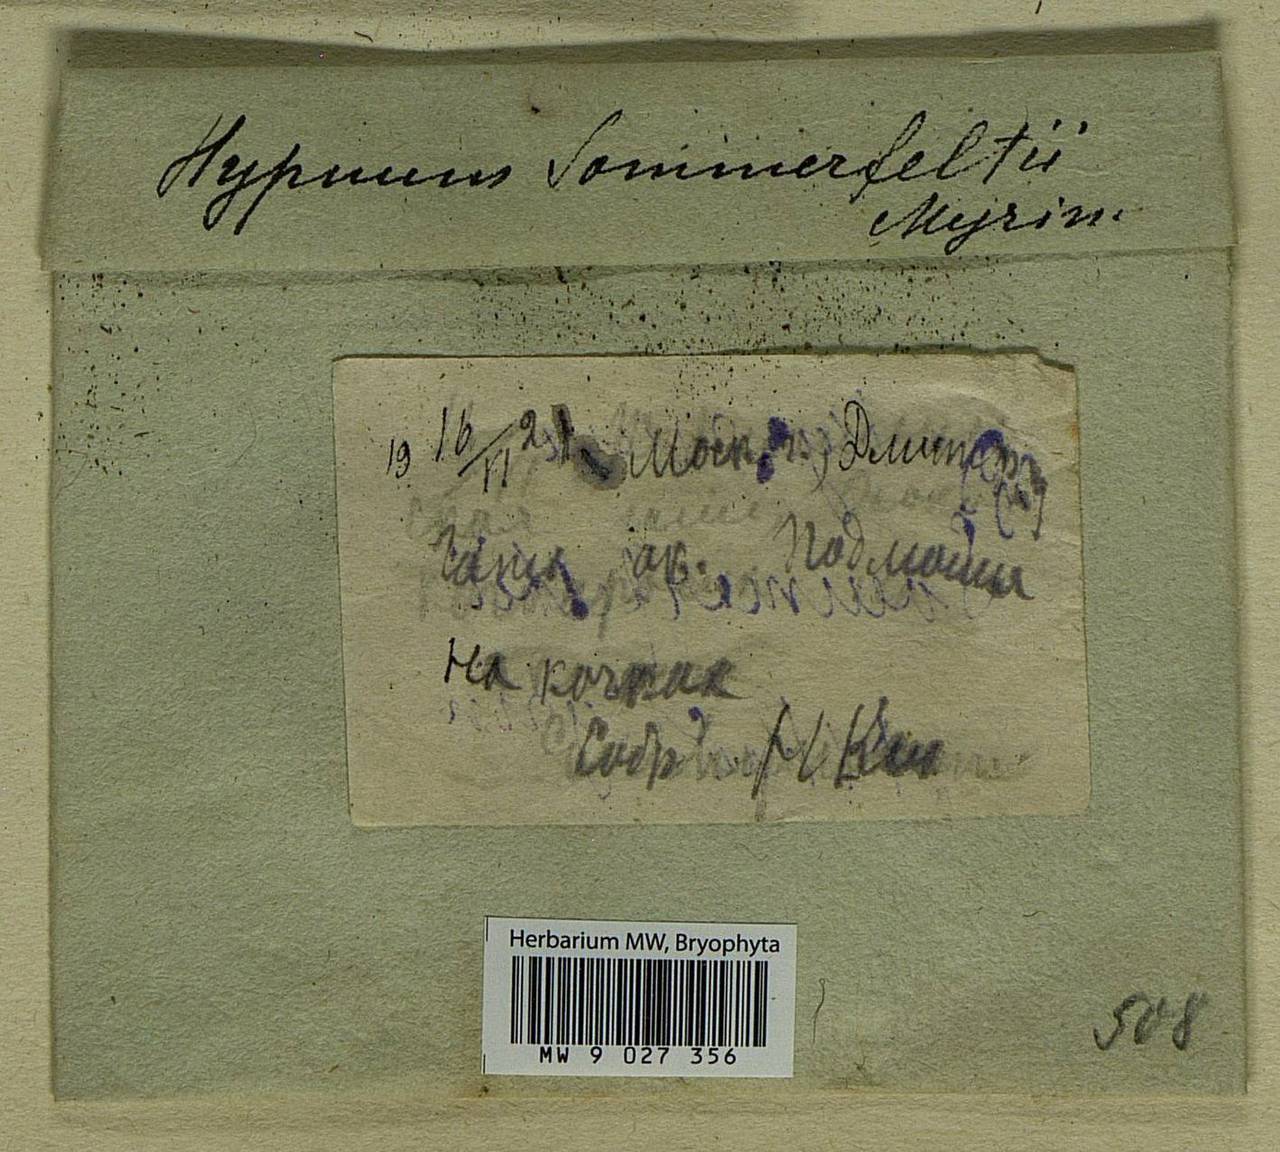 Hypnum Sommerfeltii
Myrin.
19 16/VI 21 Моск. г., Дмитр.
ок. Подмош
На кочках
Собр.
Herbarium MW, Bryophyta
MW 9 027 356
508